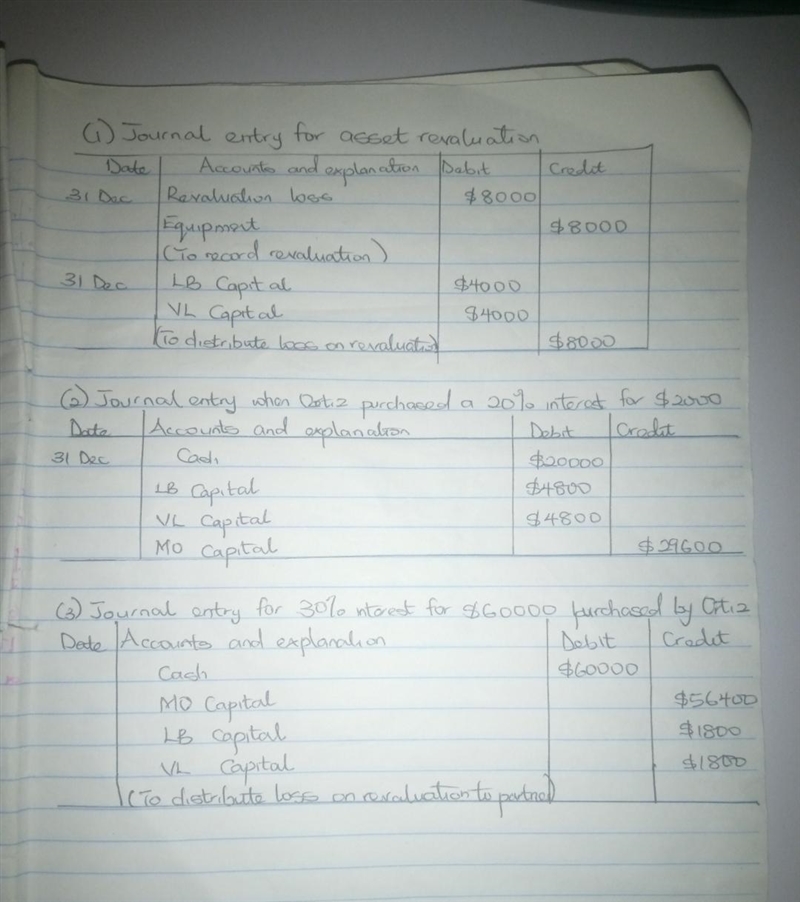 (1) Journal entry for asset revaluation
Date Accounts and explanation Debit Credit
31 Dec Revaluation loss $8000
Equipment $8000
(To record revaluation)
31 Dec LB Capital $4000
VL Capital $4000
(To distribute loss on revaluation) $8000
(2) Journal entry when Ortiz purchased a 20% interest for $2000
Date Accounts and explanation Debit Credit
31 Dec Cash $20000
LB Capital $4800
VL Capital $4800
MO Capital $29600
(3) Journal entry for 30% interest for $60000 purchased by Ortiz
Date Accounts and explanation Debit Credit
Cash $60000
MO Capital $56400
LB Capital $1800
VL Capital $1800
(To distribute loss on revaluation to partner)